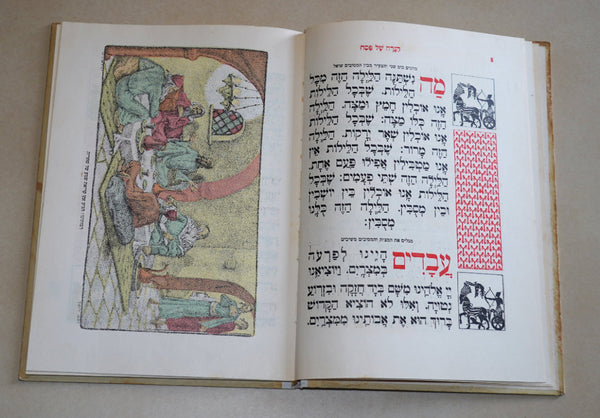 הגדה של פסח
מוזגים כוס שני והצעיר מבין המסובים שואל
מַה נִּשְׁתַּנָּה הַלַּיְלָה הַזֶּה מִכָּל
הַלֵּילוֹת. שֶׁבְּכָל הַלֵּילוֹת
אָנוּ אוֹכְלִין חָמֵץ וּמַצָּה. הַלַּיְלָה
הַזֶּה כֻּלּוֹ מַצָּה: שֶׁבְּכָל הַלֵּילוֹת
אָנוּ אוֹכְלִין שְׁאָר יְרָקוֹת. הַלַּיְלָה
הַזֶּה מָרוֹר: שֶׁבְּכָל הַלֵּילוֹת אֵין
אָנוּ מַטְבִּילִין אֲפִילוּ פַּעַם אֶחָת.
הַלַּיְלָה הַזֶּה שְׁתֵּי פְעָמִים: שֶׁבְּכָל
הַלֵּילוֹת אָנוּ אוֹכְלִין בֵּין יוֹשְׁבִין
וּבֵין מְסֻבִּין. הַלַּיְלָה הַזֶּה כֻּלָּנוּ
מְסֻבִּין:
מגלים את המצות והמסובים משיבים
עֲבָדִים הָיִינוּ לְפַרְעֹה
בְּמִצְרָיִם. וַיּוֹצִיאֵנוּ
יְיָ אֱלֹהֵינוּ מִשָּׁם בְּיָד חֲזָקָה וּבִזְרוֹעַ
נְטוּיָה. וְאִלּוּ לֹא הוֹצִיא הַקָּדוֹשׁ
בָּרוּךְ הוּא אֶת אֲבוֹתֵינוּ מִמִּצְרַיִם.